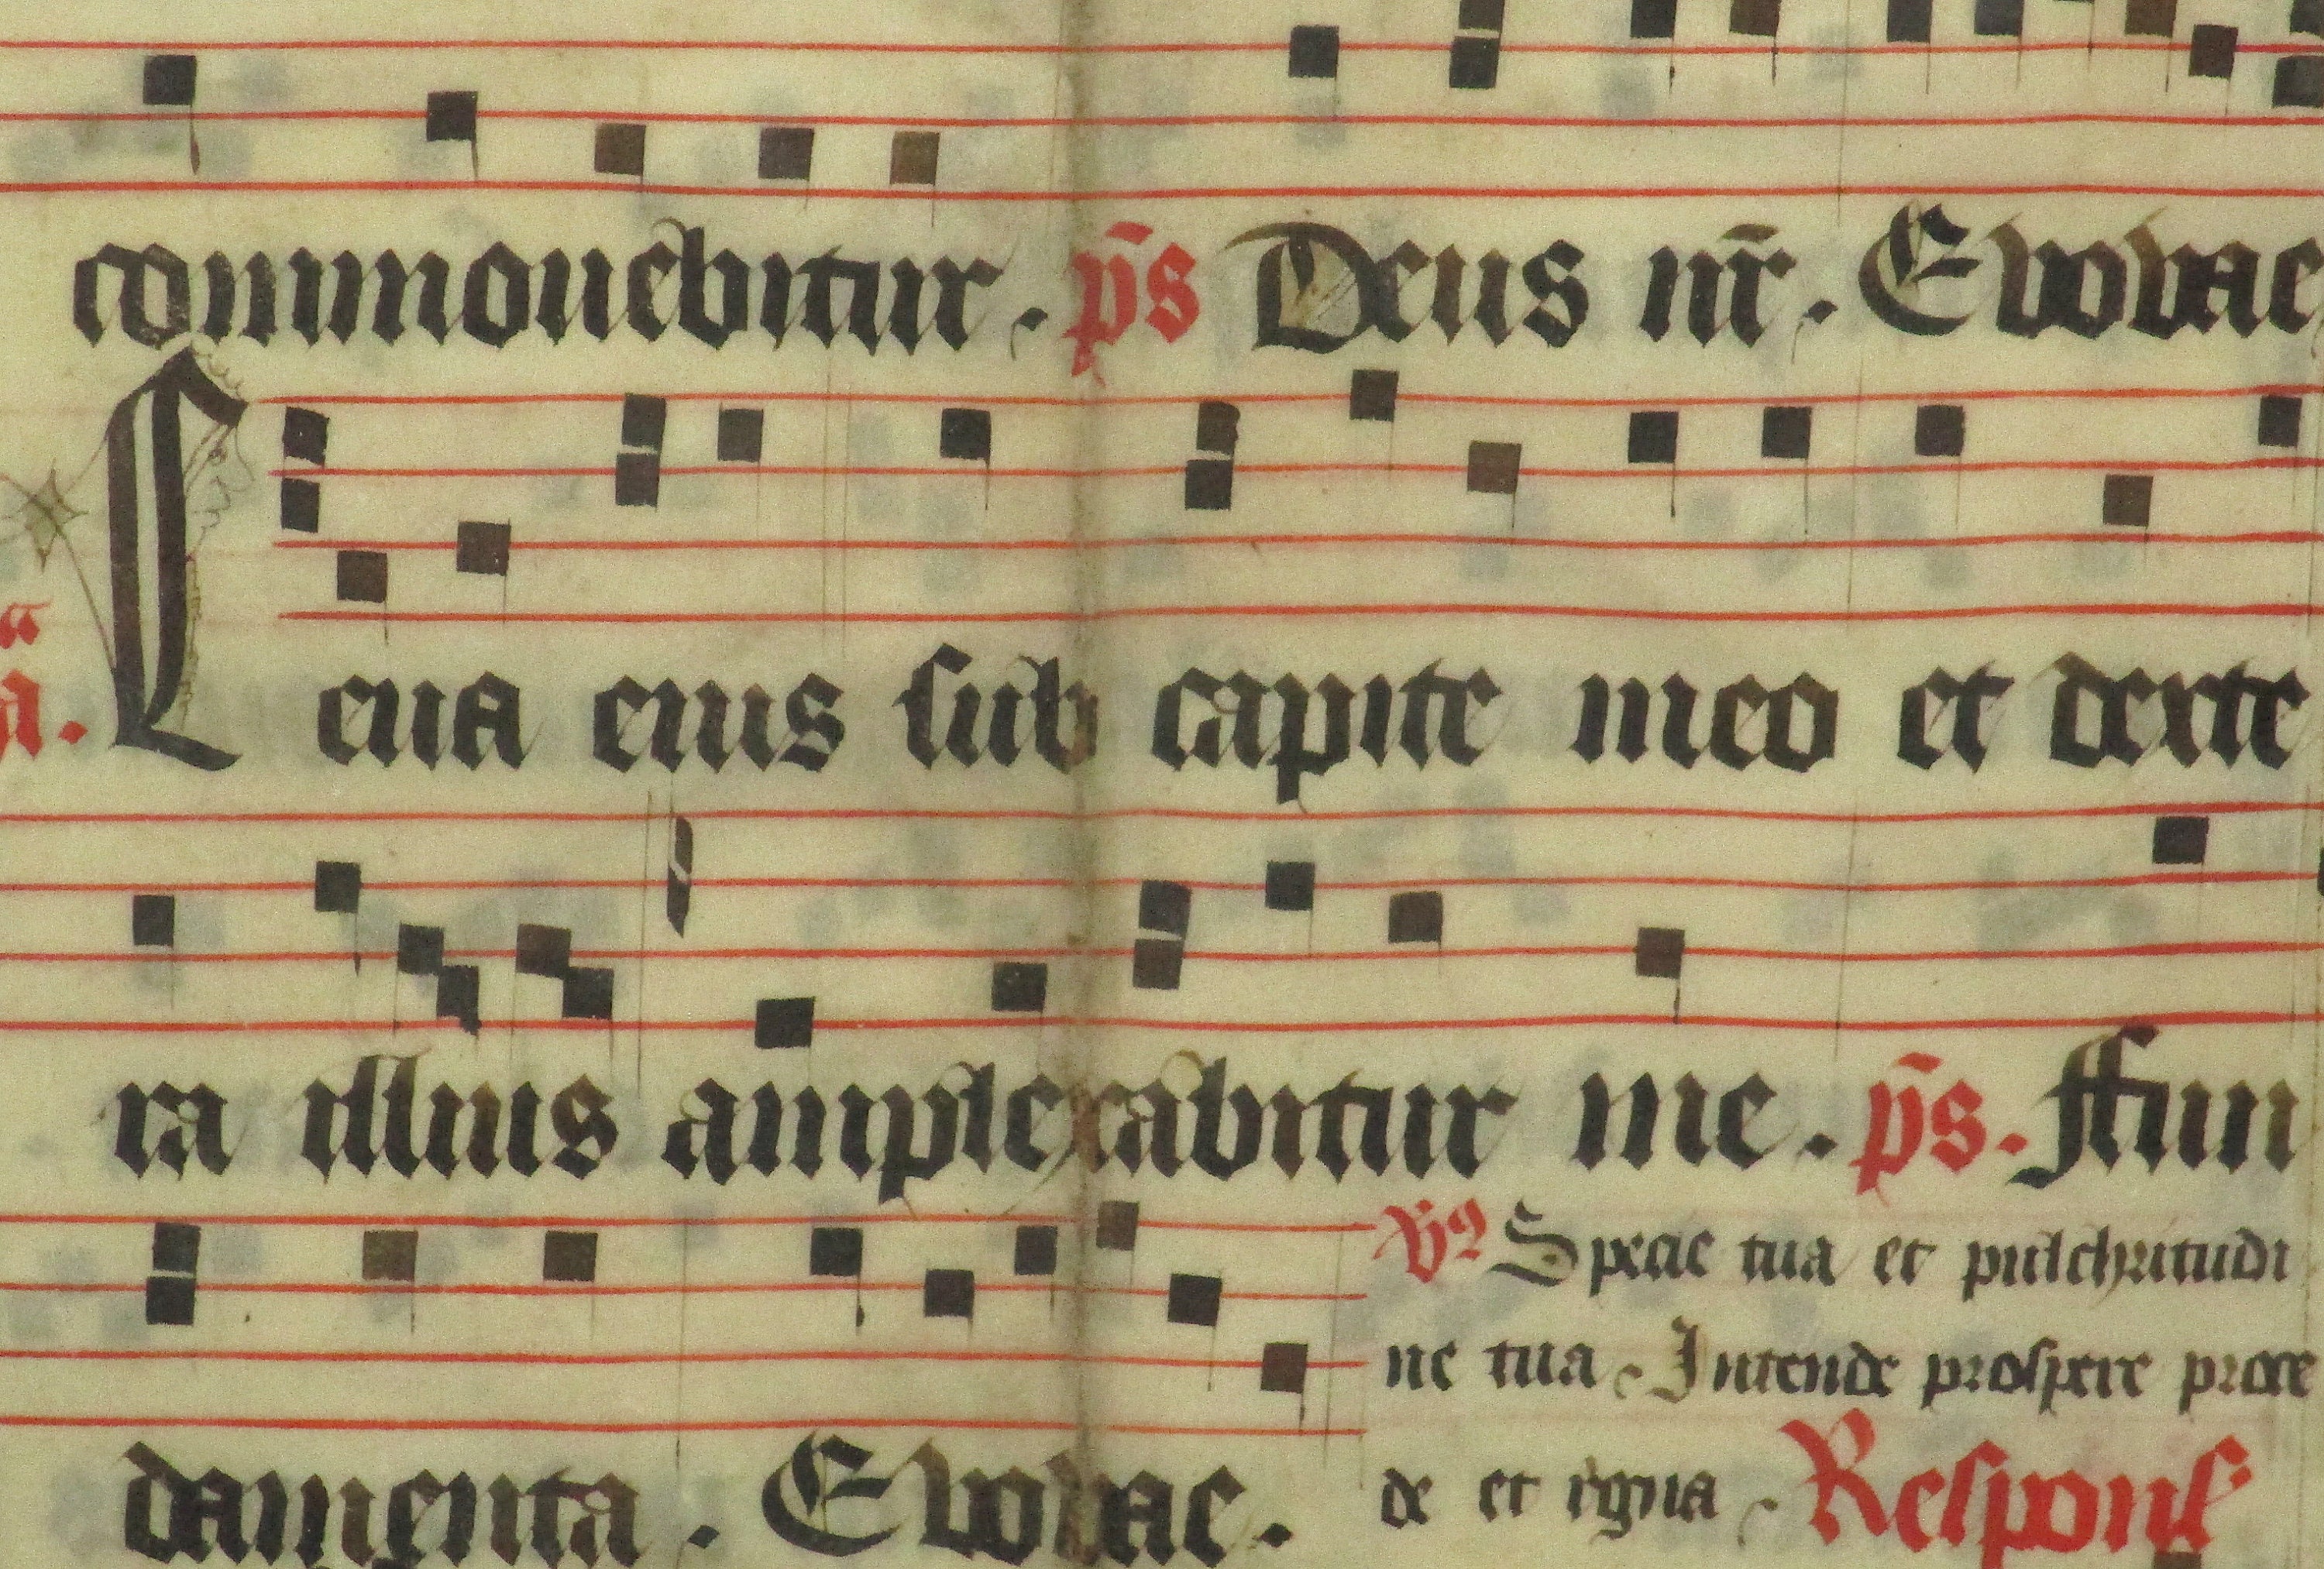 commouebitur. ps Deus nr. Evovae
a.
Leua eius sub capite meo et dexte
ra illius amplexabitur me. ps. ffun
V Specie tua et pulchritudi
ne tua. Intende prospere proce
damenta. Evovae.
de et regna. Respons